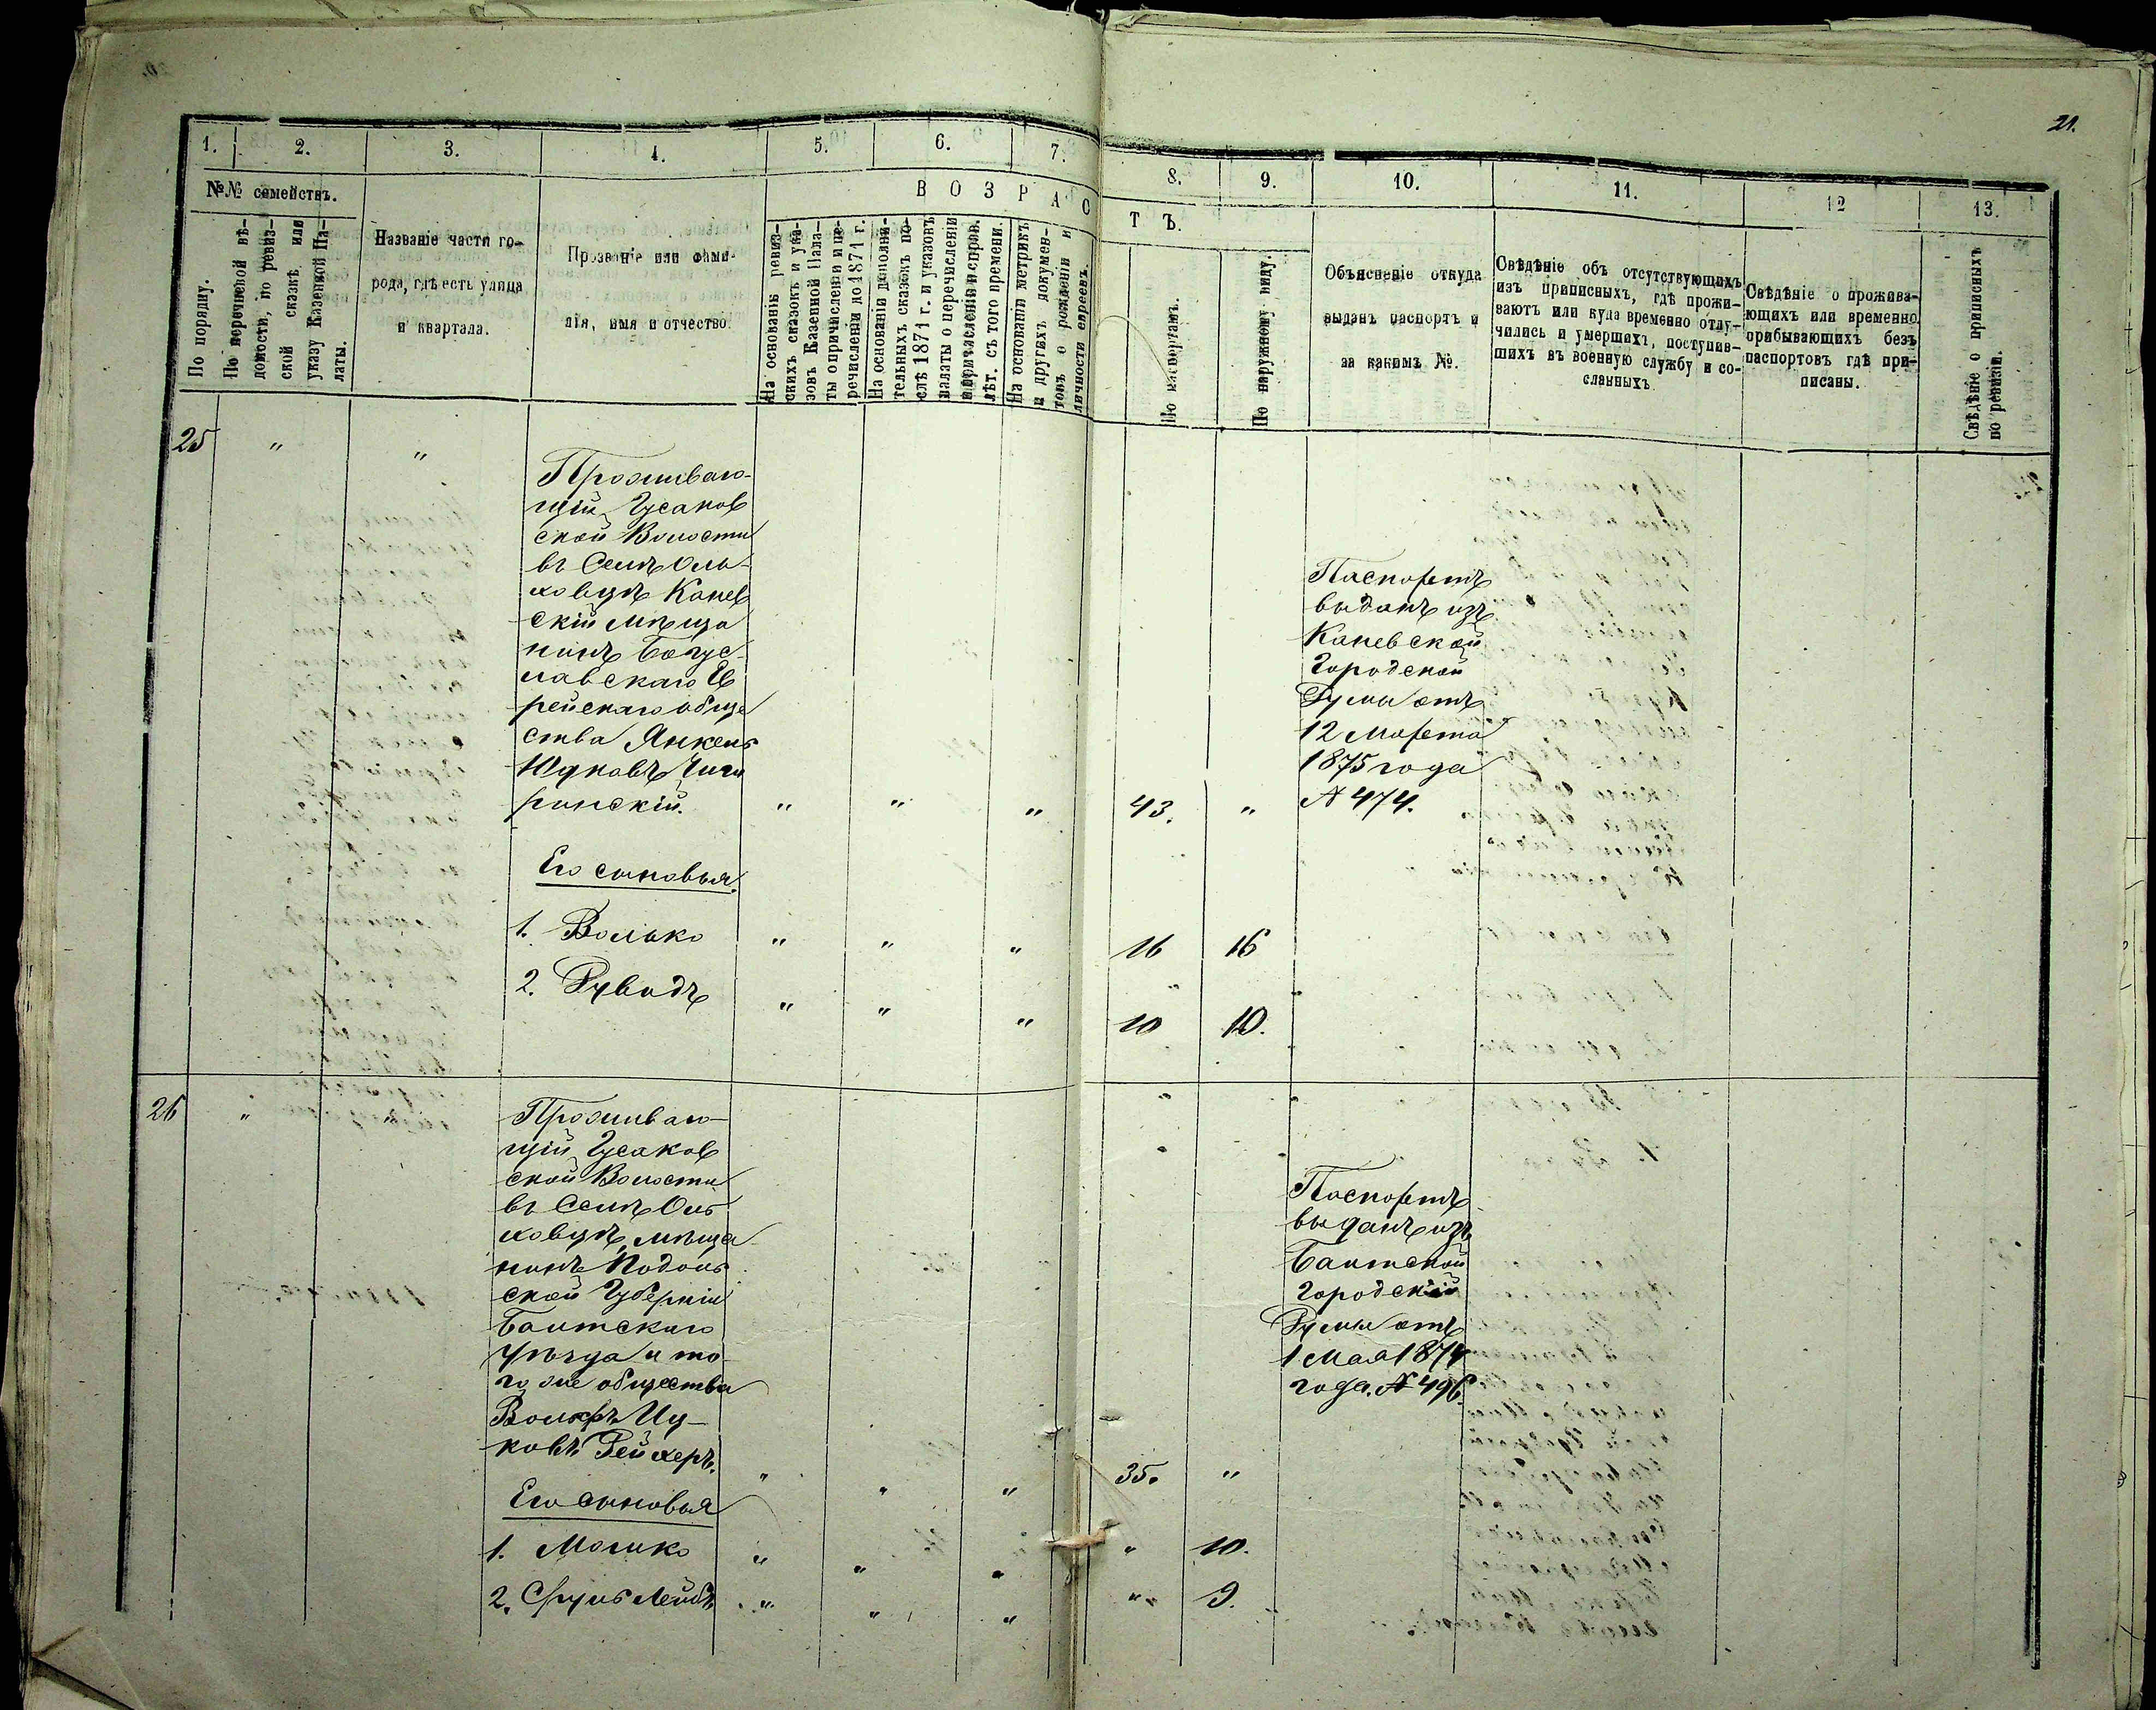 21.
1. 2. 3. 4. 5. 6. 7. 8. 9. 10. 11. 12 13.
№№ семействъ.
В О З Р А С Т Ъ.
По порядку.
По перечневой вѣ-
домости, по ревиз-
ской сказкѣ или
указу Казенной Па-
латы.
Названіе части го-
рода, гдѣ есть улица
и квартала.
Прозваніе или фами-
лія, имя и отчество.
На основаніи ревиз-
скихъ сказокъ и ука-
зовъ Казенной Пала-
ты о причисленіи и пе-
речисленіи до 1871 г.
На основаніи дополни-
тельныхъ сказокъ по-
слѣ 1871 г. и указовъ
палаты о перечисленіи
и причисленіи и справ.
лѣт. съ того времени.
На основаніи метрикъ
и другихъ докумен-
товъ о рожденіи и
личности евреевъ.
По паспортамъ.
По наружному виду.
Объясненіе откуда
выданъ паспортъ и
за какимъ №.
Свѣдѣніе объ отсутствующихъ
изъ приписныхъ, гдѣ прожи-
ваютъ или куда временно отлу-
чились и умершихъ, поступив-
шихъ въ военную службу и со-
сланныхъ
Свѣдѣніе о прожива-
ющихъ или временно
прибывающихъ безъ
паспортовъ гдѣ при-
писаны.
Свѣдѣніе о приписныхъ
по ревизіи.
25 " "
Проживаю-
щій Гусаков
ской Волости
въ Селѣ Оль-
ховцѣ Канев
скій мѣща
нинъ Богус-
лавскаго Ев
рейскаго обще
ства Янкель
Юдковъ Чиги
ринскій. " " " 43. "
Паспортъ
выданъ изъ
Каневской
Городской
Думы отъ
12 Марта
1875 года
№ 474.
Его сыновья.
1. Волько " " " 16 16
2. Дувидъ " " " 10 10.
26 " "
Проживаю-
щій Гусаков
ской Волости
въ Селѣ Оль
ховцѣ, мѣща
нинъ Подоль
ской Губерніи
Балтскаго
Уѣзда и то-
го же общества
Волькъ Иц-
ковъ Рейхеръ. " " " 35. "
Паспортъ
выданъ изъ
Балтской
Городской
Думы отъ
1 Мая 1874
года. № 496.
Его сыновья
1. Мошко " " " " 10.
2. Сруль Лейбъ " " " " 9.